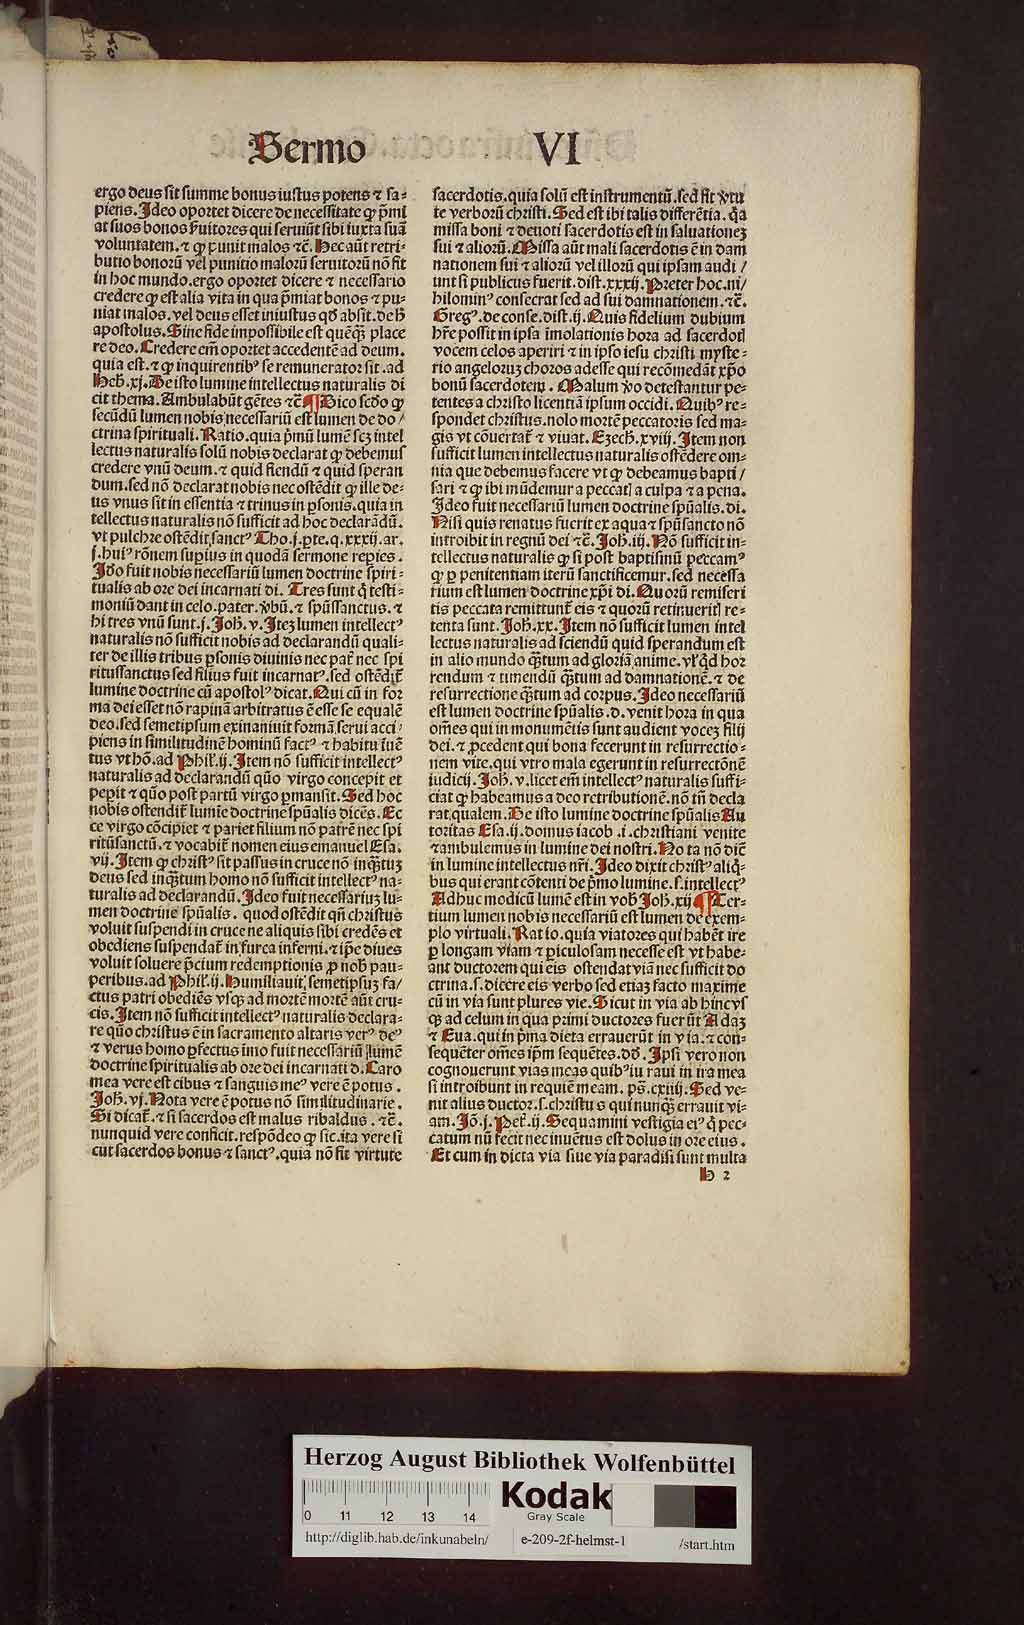 Sermo VI
ergo deus sit summe bonus iustus potens ⁊ sa⸗
piens. Ideo oportet dicere de necessitate ꝙ p̄mi
at suos bonos ẜuitores qui seruiūt sibi iuxta suā
voluntatem. ⁊ ꝙ punit malos ⁊c̄. Hec aūt retri⸗
butio bonorū vel punitio malorū seruitorū nō fit
in hoc mundo. ergo oportet dicere ⁊ necessario
credere ꝙ est alia vita in qua p̄miat bonos ⁊ pu⸗
niat malos. vel deus esset iniustus qd̄ absit. de h̄
apostolus. Sine fide impossibile est quēq̄ place
re deo. Credere em̄ oportet accedentē ad deum.
quia est. ⁊ ꝙ inquirentibꝰ se remunerator sit. ad
Heb̄. xj. De isto lumine intellectus naturalis di
cit thema. Ambulabūt gētes ⁊c̄ ¶ Dico scd̄o ꝙ
secūdū lumen nobis necessariū est lumen de do/
ctrina spirituali. Ratio. quia p̄mū lumē scꝫ intel
lectus naturalis solū nobis declarat ꝙ debemus
credere vnū deum. ⁊ quid fiendū ⁊ quid speran
dum. sed nō declarat nobis nec ostēdit ꝙ ille de⸗
us vnus sit in essentia ⁊ trinus in ꝑsonis. quia in
tellectus naturalis nō sufficit ad hoc declarādū.
vt pulchre ostēdit sanctꝰ Tho. j. ꝑte. q. xxxij. ar.
j. huiꝰ rōnem supius in quodā sermone repies.
Ido fuit nobis necessariū lumen doctrine spiri⸗
tualis ab ore dei incarnati di. Tres sunt q̇ testi⸗
moniū dant in celo. pater. v̄bū. ⁊ spūssanctus. ⁊
hi tres vnū sunt. j. Joh̄. v. Iteꝫ lumen intellectꝰ
naturalis nō sufficit nobis ad declarandū quali⸗
ter de illis tribus ꝑsonis diuinis nec pat̄ nec spi
ritussanctus sed filius fuit incarnatꝰ. sed ostēdit̄
lumine doctrine cū apostolꝰ dicat. Qui cū in for
ma dei esset nō rapinā arbitratus ē esse se equalē
deo. sed semetipsum exinaniuit formā serui acci⸗
piens in similitudinē hominū factꝰ ⁊ habitu iuē
tus vt hō. ad Phil̄. ij. Item nō sufficit intellectꝰ
naturalis ad declarandū quō virgo concepit et
peꝑit ⁊ quō post partū virgo ꝑmansit. Sed hoc
nobis ostendit̄ lumīe doctrine spūalis dicēs. Ec
ce virgo cōcipiet ⁊ pariet filium nō patrē nec spi
ritūsanctū. ⁊ vocabit̄ nomen eius emanuel Esa.
vij. Item ꝙ christꝰ sit passus in cruce nō inq̄tuꝫ
deus sed inq̄tum homo nō sufficit intellectꝰ na⸗
turalis ad declarandū. Ideo fuit necessariuꝫ lu⸗
men doctrine spūalis. quod ostēdit qn̄ christus
voluit suspendi in cruce ne aliquis sibi credēs et
obediens suspendat̄ in furca inferni. ⁊ ip̄e diues
voluit soluere p̄cium redemptionis ꝓ nob̄ pau⸗
peribus. ad Phil̄. ij. Humiliauit semetipsuꝫ fa/
ctus patri obediēs vsqꝫ ad mortē mortē aūt cru⸗
cis. Item nō sufficit intellectꝰ naturalis declara⸗
re quō christus ē in sacramento altaris verꝰ deꝰ
⁊ verus homo ꝑfectus imo fuit necessariū lumē
doctrine spiritualis ab ore dei incarnati d. Caro
mea vere est cibus ⁊ sanguis meꝰ vere ē potus.
Joh̄. vj. Nota vere ē potus nō similitudinarie.
Si dicat̄. ⁊ si sacerdos est malus ribaldus. ⁊c̄.
nunquid vere conficit. respōdeo ꝙ sic. ita vere si
cut sacerdos bonus ⁊ sanctꝰ. quia nō fit virtute
sacerdotis. quia solū est instrumentū. sed fit v̄tu
te verborū christi. Sed est ibi talis differētia. q̄a
missa boni ⁊ deuoti sacerdotis est in saluationeꝫ
sui ⁊ aliorū. Missa aūt mali sacerdotis ē in dam
nationem sui ⁊ aliorū vel illorū qui ipsam audi/
unt si publicus fuerit. dist. xxxij. Preter hoc. ni/
hilominꝰ consecrat sed ad sui damnationem. ⁊c̄.
Gregꝰ. de conse. dist. ij. Quis fidelium dubium
hr̄e possit in ipsa īmolationis hora ad sacerdotꝭ
vocem celos aperiri ⁊ in ipso iesu christi myste⸗
rio angeloruꝫ choros adesse qui recōmedāt xp̄o
bonū sacerdotem. Malum v̄o detestantur pe⸗
tentes a christo licentiā ipsum occidi. Quibꝰ re⸗
spondet christus. nolo mortē peccatoris sed ma⸗
gis vt cōuertat̄ ⁊ viuat. Ezech̄. xviij. Item non
sufficit lumen intellectus naturalis ostēdere om⸗
nia que debemus facere vt ꝙ debeamus bapti/
sari ⁊ ꝙ ibi mūdemur a peccatꝭ a culpa ⁊ a pena.
Ideo fuit necessariū lumen doctrine spūalis. di.
Nisi quis renatus fuerit ex aqua ⁊ spūsancto nō
introibit in regnū dei ⁊c̄. Joh̄. iij. Nō sufficit in⸗
tellectus naturalis ꝙ si post baptismū peccamꝰ
ꝙ ꝑ penitentiam iterū sanctificemur. sed necessa
rium est lumen doctrine xp̄i di. Quorū remiseri
tis peccata remittunt̄ eis ⁊ quorū retinueritꝭ re⸗
tenta sunt. Joh̄. xx. Item nō sufficit lumen intel
lectus naturalis ad sciendū quid sperandum est
in alio mundo q̄tum ad gloriā anime. vl̄ q̇d hor
rendum ⁊ timendū q̄tum ad damnationē. ⁊ de
resurrectione q̄tum ad corpus. Ideo necessariū
est lumen doctrine spūalis. d. venit hora in qua
om̄es qui in monumētis sunt audient voceꝫ filij
dei. ⁊ ꝓcedent qui bona fecerunt in resurrectio⸗
nem vite. qui vero mala egerunt in resurrectōnē
iudicij. Joh̄. v. licet em̄ intellectꝰ naturalis suffi⸗
ciat ꝙ habeamus a deo retributionē. nō tn̄ decla
rat qualem. De isto lumine doctrine spūalis Au
toritas Esa. ij. domus iacob .i. christiani venite
⁊ ambulemus in lumine dei nostri. No ta nō dic̄
in lumine intellectus nr̄i. Ideo dixit christꝰ aliq̇⸗
bus qui erant cōtenti de p̄mo lumine. s. intellectꝰ
Adhuc modicū lumē est in vob̄ Joh̄. xij ¶ Ter⸗
tium lumen nobis necessariū est lumen de exem⸗
plo virtuali. Rat io. quia viatores qui habēt ire
ꝑ longam viam ⁊ ꝑiculosam necesse est vt habe⸗
ant ductorem qui eis ostendat viā nec sufficit do
ctrina. s. dicere eis verbo sed etiaꝫ facto maxime
cū in via sunt plures vie. Sicut in via ab hinc vs
qꝫ ad celum in qua primi ductores fuerūt Adaꝫ
⁊ Eua. qui in p̄ma dieta errauerūt in via. ⁊ con⸗
sequēter om̄es ip̄m sequētes. dd̄. Ipsi vero non
cognouerunt vias meas quibꝰ iu raui in ira mea
si introibunt in requiē meam. ps̄. cxiiij. Sed ve⸗
nit alius ductor. s. christu s qui nunq̄ errauit vi⸗
am. Jō. j. Pet̄. ij. Sequamini vestigia eiꝰ q̇ pec⸗
catum nū fecit nec inuētus est dolus in ore eius.
Et cum in dicta via siue via paradisi sunt multa
b 2
Herzog August Bibliothek Wolfenbüttel
Kodak
Gray Scale
0 11 12 13 14
http://diglib.hab.de/inkunabeln/ e-209-2f-helmst-1 /start.htm